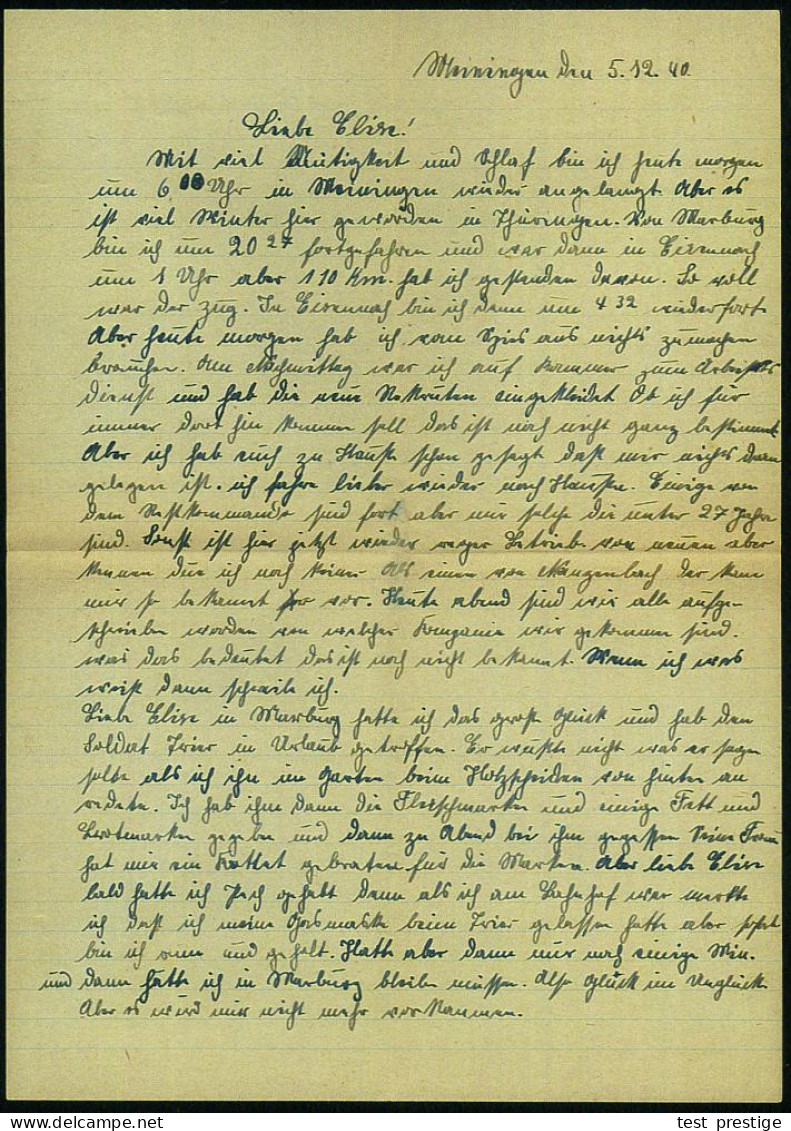 Meiningen den 5.12.40.
Liebe Elise!
Mit viel Mütigkeit und Schlaf bin ich heute morgen
um 6 00 Uhr in Meiningen wieder angelangt. Aber es
ist viel Winter hier geworden in Thüringen. Von Marburg
bin ich um 20 27 fortgefahren und war dann in Eisennach
um 1 Uhr aber 110 Km. hab ich gestanden davon. So voll
war der Zug. In Eisennach bin ich dann um 4 32 wiederfort
Aber heute morgen hab ich vom Spies aus nichts zumachen
brauchen. Am Nachmittag war ich auf Kammer zum Arbeits
dienst und hab die neue Rekruten eingekleidet Ob ich für
immer dort hin kommen soll das ist noch nicht ganz bestimmt
Aber ich hab euch zu Hause schon gesagt daß mir nichts dran
gelegen ist. ich fahre lieber wieder nach Hause. Einige von
dem Restkommando sind fort aber nur solche die unter 27 Jahre
sind. Sonst ist hier jetzt wieder reger Betrieb von neuen aber
kennen due ich noch keiner Als einen von der kam
mir so bekannt vor. Heute abend sind wir alle aufge-
schrieben worden von welcher Kompanie wir gekommen sind.
was das bedeutet das ist noch nicht bekannt. Wenn ich was
weiß dann schreibe ich.
Liebe Elise in Marburg hatte ich das große Glück und hab den
Soldat Trier in Urlaub getroffen. Er wußte nicht was er sagen
sollte als ich ihn im Garten beim Holzscheiden von hinten an
redete. Ich hab ihm dann die Fleischmarken und einige Fett und
Brotmarken gegeben und dann zu Abend bei ihm gegessen Seine Frau
hat mir ein Kottlet gebraten für die Marken. Aber liebe Elise
bald hatte ich Pech gehabt denn als ich am Bahnhof war merkte
ich daß ich meine Gasmaske beim Trier gelassen hatte aber sofort
bin ich und geholt. Hatte aber dann nur noch einige Min.
und dann hätte ich in Marburg bleiben müssen. Also Glück im Unglück
Aber es wird mir nicht mehr vorkommen.
test prestige